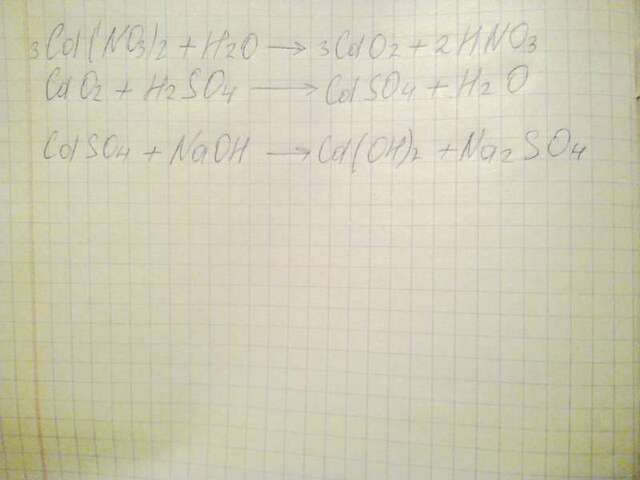 3Cd(NO3)2 + H2O → 3CdO2 + 2HNO3
CdO2 + H2SO4 → CdSO4 + H2O
CdSO4 + NaOH → Cd(OH)2 + Na2SO4